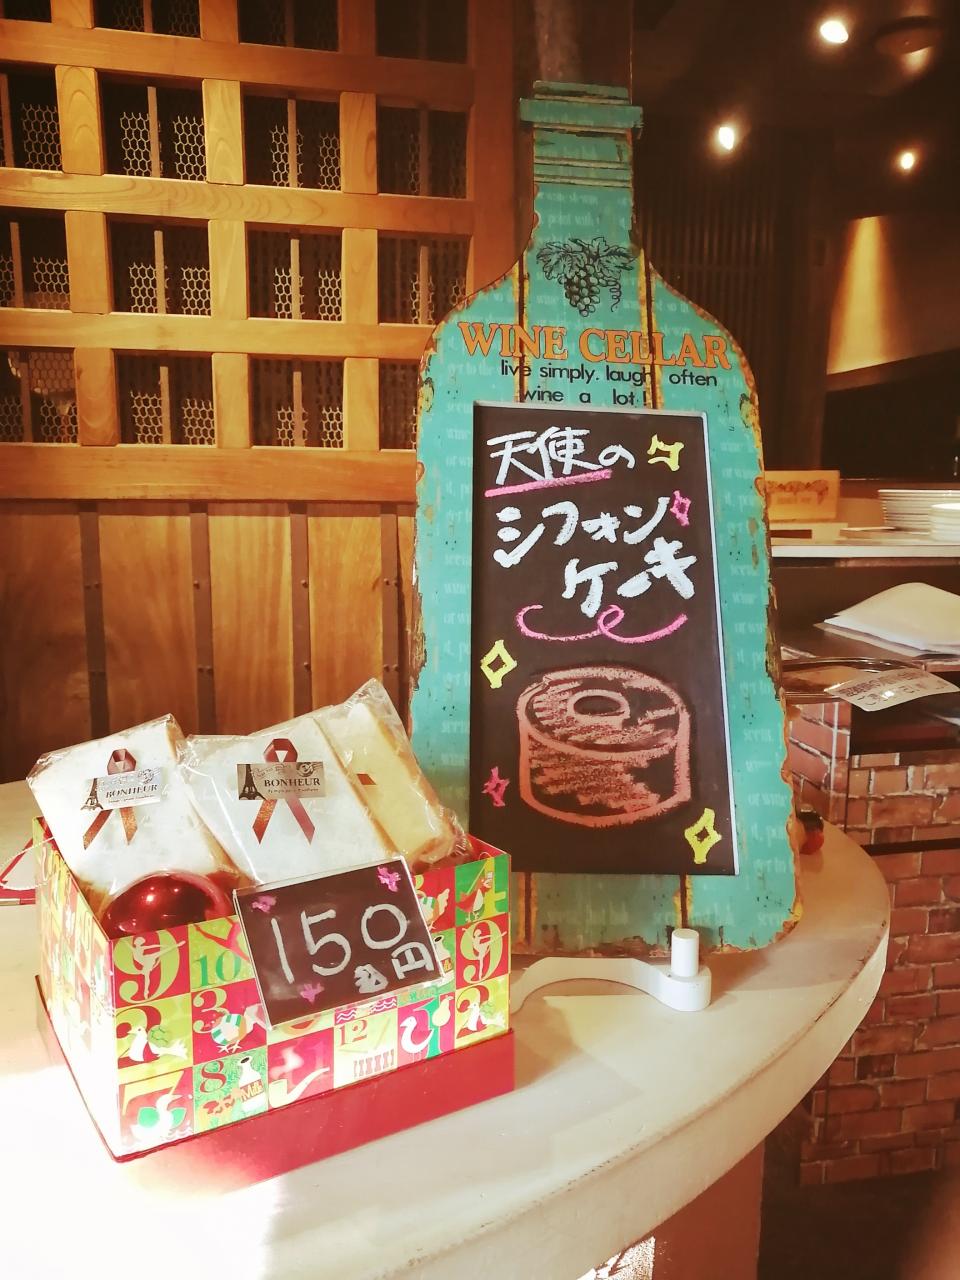 WINE CELLAR
live simply. laugh often
wine a lot!
天使の
シフォン
ケーキ
BONHEUR
BONHEUR
150
円
9
10
3
12
8
7
2
9
4
Milk